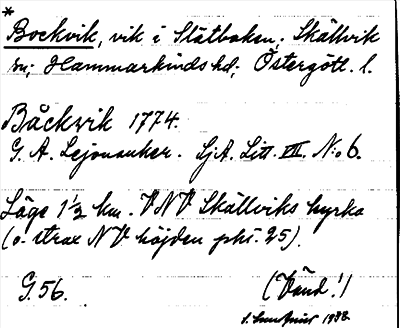 *
Bockvik, vik i Slätbaken. Skällvik
sn; Hammarkinds hd; Östergötl. l.
Båckvik 1774.
G. A. Lejonanker. Sj.A. Litt. VII. N:o 6.
Läge 1 1/2 km. VNV Skällviks kyrka
(o. strax NV höjden pkt. 25).
G. 56.
(Vänd!)
1938.